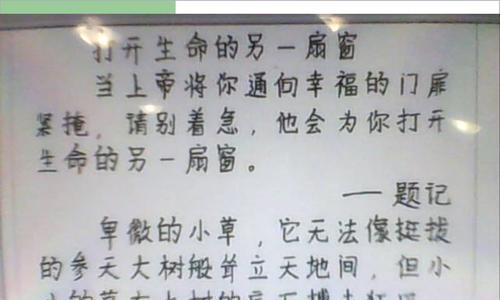 打开生命的另一扇窗
当上帝将你通向幸福的门扉
紧掩，请别着急，他会为你打开
生命的另一扇窗。
——题记
卑微的小草，它无法像挺拔
的参天大树般耸立天地间，但小